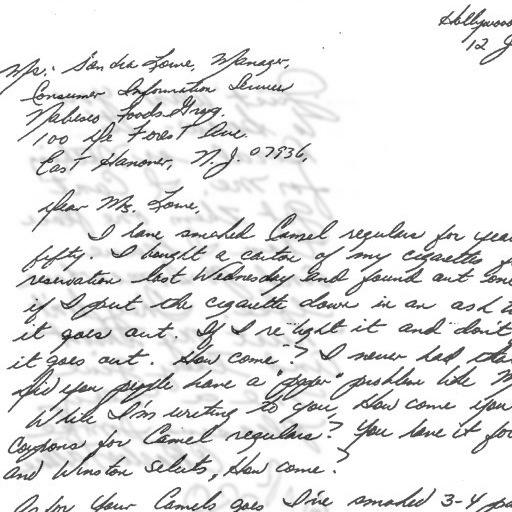 Hollywood
12 J
Ms. Sandra Lowe, Manager,
Consumer Information Services
Nabisco Foods Group.
100 De Forest Ave.
East Hanover, N.J. 07936,
Dear Ms. Lowe,
I have smoked Camel regulars for year
fifty. I bought a carton of my cigarettes
reservation last Wednesday and found out
if I put the cigarette down in an ash t
it goes out. If I re light it and don't
it goes out. How come? I never had
Did you people have a "paper" problem like
While I'm writing to you, How come you
Coupons for Camel regulars? You have it for
and Winston Selects, How come?
As for your Camels goes I've smoked 3-4 pa